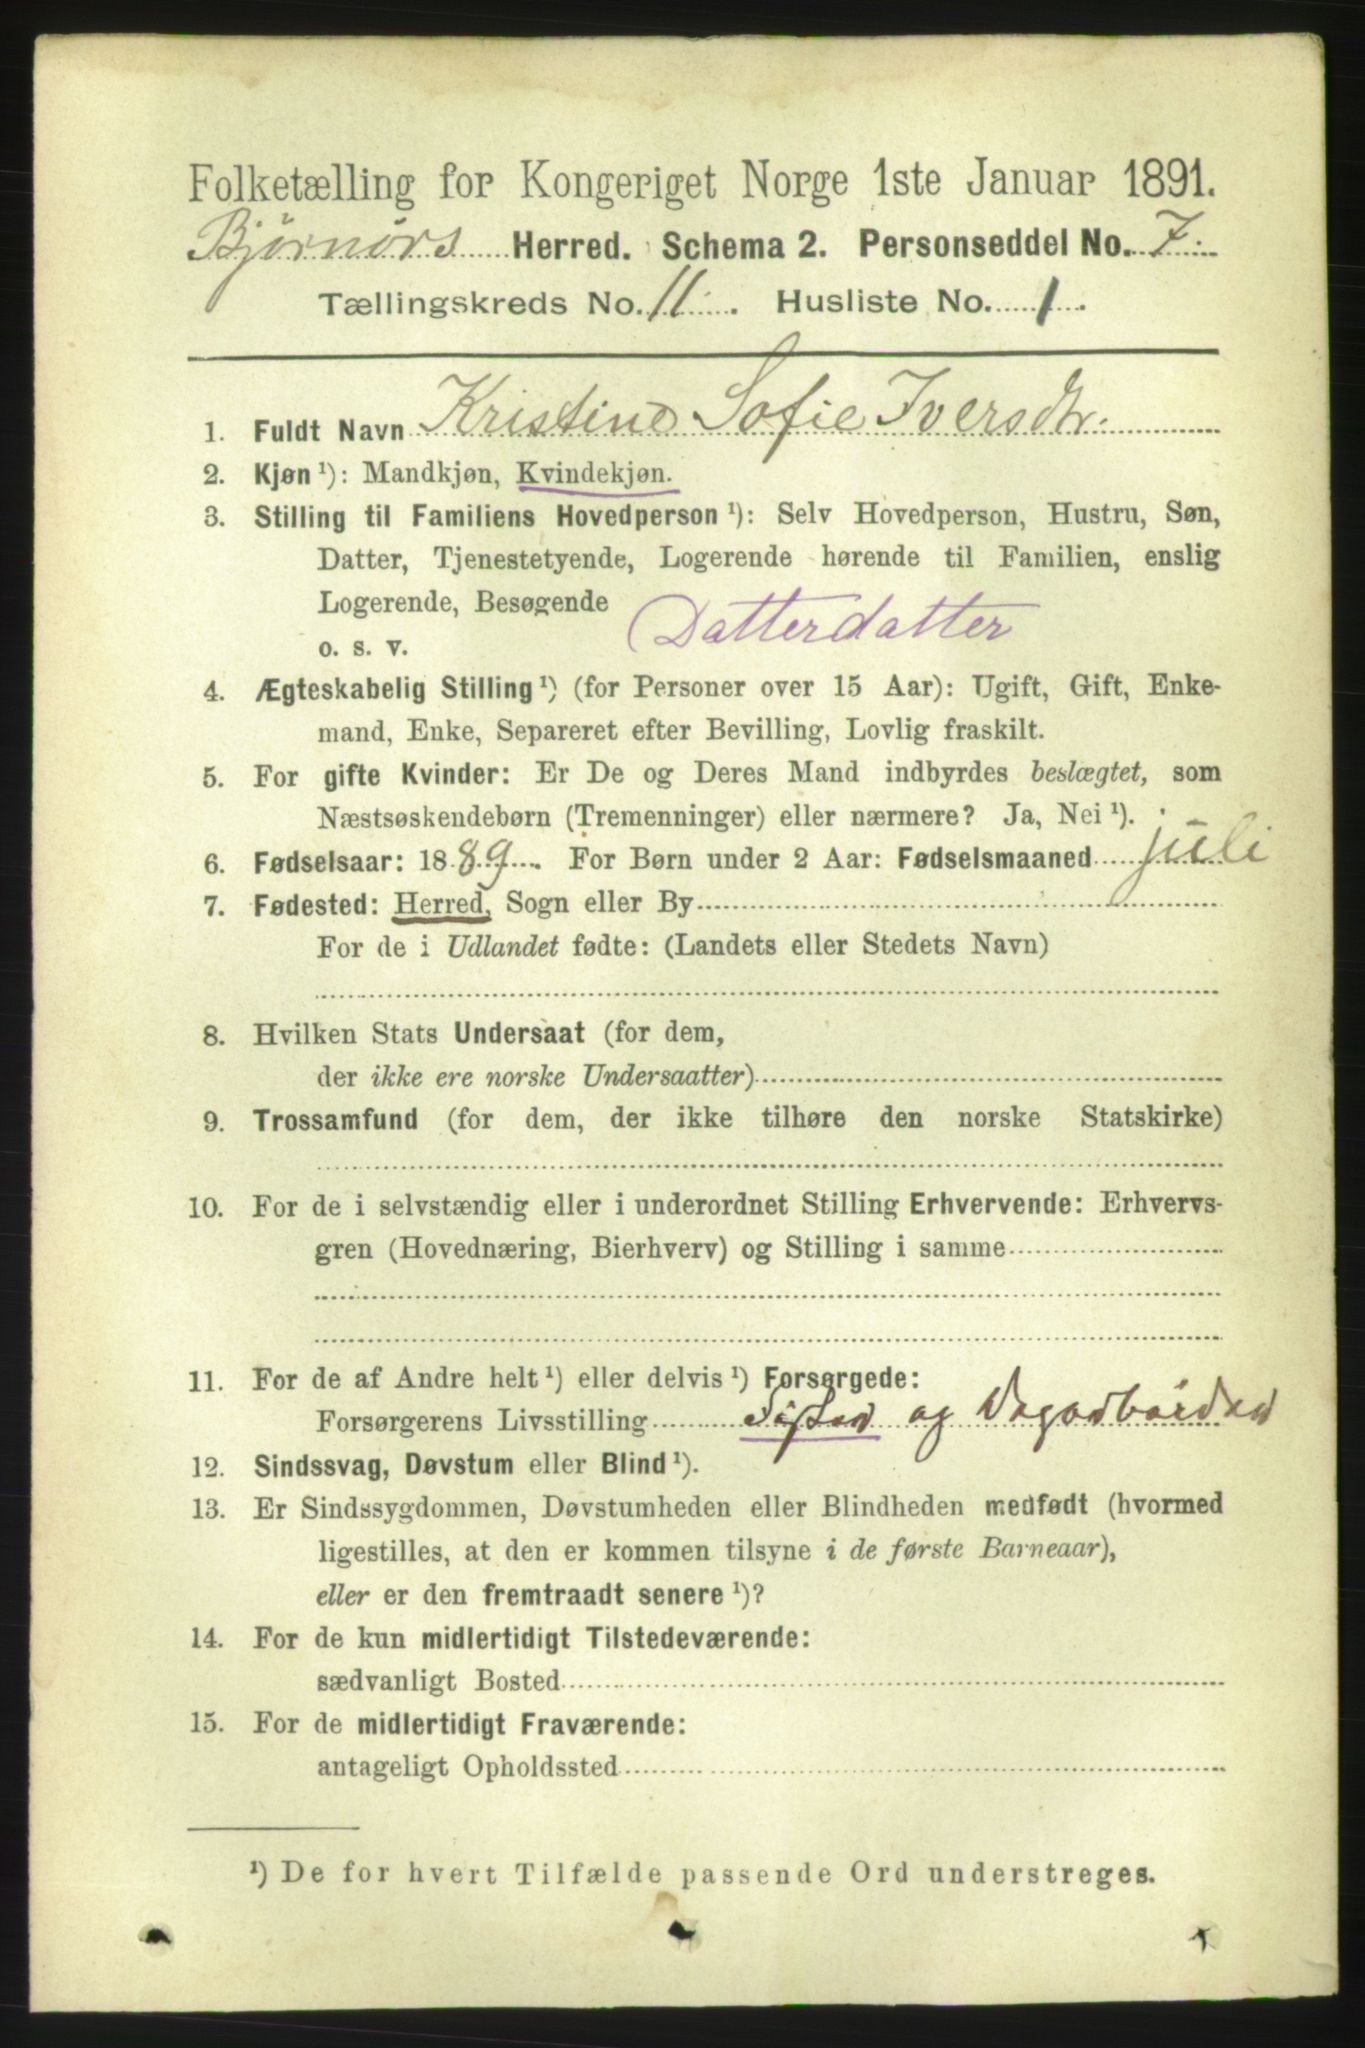 Folketælling for Kongeriget Norge 1ste Januar 1891.
Bjørnørs Herred. Schema 2. Personseddel No. 7.
Tællingskreds No. 11. Husliste No. 1.
1. Fuldt Navn Kristine Sofie Iversdtr.
2. Kjøn ¹): Mandkjøn, Kvindekjøn.
3. Stilling til Familiens Hovedperson ¹): Selv Hovedperson, Hustru, Søn,
Datter, Tjenestetyende, Logerende hørende til Familien, enslig
Logerende, Besøgende
o. s. v. Datterdatter
4. Ægteskabelig Stilling ¹) (for Personer over 15 Aar): Ugift, Gift, Enke-
mand, Enke, Separeret efter Bevilling, Lovlig fraskilt.
5. For gifte Kvinder: Er De og Deres Mand indbyrdes beslægtet, som
Næstsøskendebørn (Tremenninger) eller nærmere? Ja, Nei ¹).
6. Fødselsaar: 1889. For Børn under 2 Aar: Fødselsmaaned juli
7. Fødested: Herred, Sogn eller By
For de i Udlandet fødte: (Landets eller Stedets Navn)
8. Hvilken Stats Undersaat (for dem,
der ikke ere norske Undersaatter)
9. Trossamfund (for dem, der ikke tilhøre den norske Statskirke)
10. For de i selvstændig eller i underordnet Stilling Erhvervende: Erhvervs-
gren (Hovednæring, Bierhverv) og Stilling i samme
11. For de af Andre helt ¹) eller delvis ¹) Forsørgede:
Forsørgerens Livsstilling og
12. Sindssvag, Døvstum eller Blind ¹).
13. Er Sindssygdommen, Døvstumheden eller Blindheden medfødt (hvormed
ligestilles, at den er kommen tilsyne i de første Barneaar),
eller er den fremtraadt senere ¹)?
14. For de kun midlertidigt Tilstedeværende:
sædvanligt Bosted
15. For de midlertidigt Fraværende:
antageligt Opholdssted
¹) De for hvert Tilfælde passende Ord understreges.